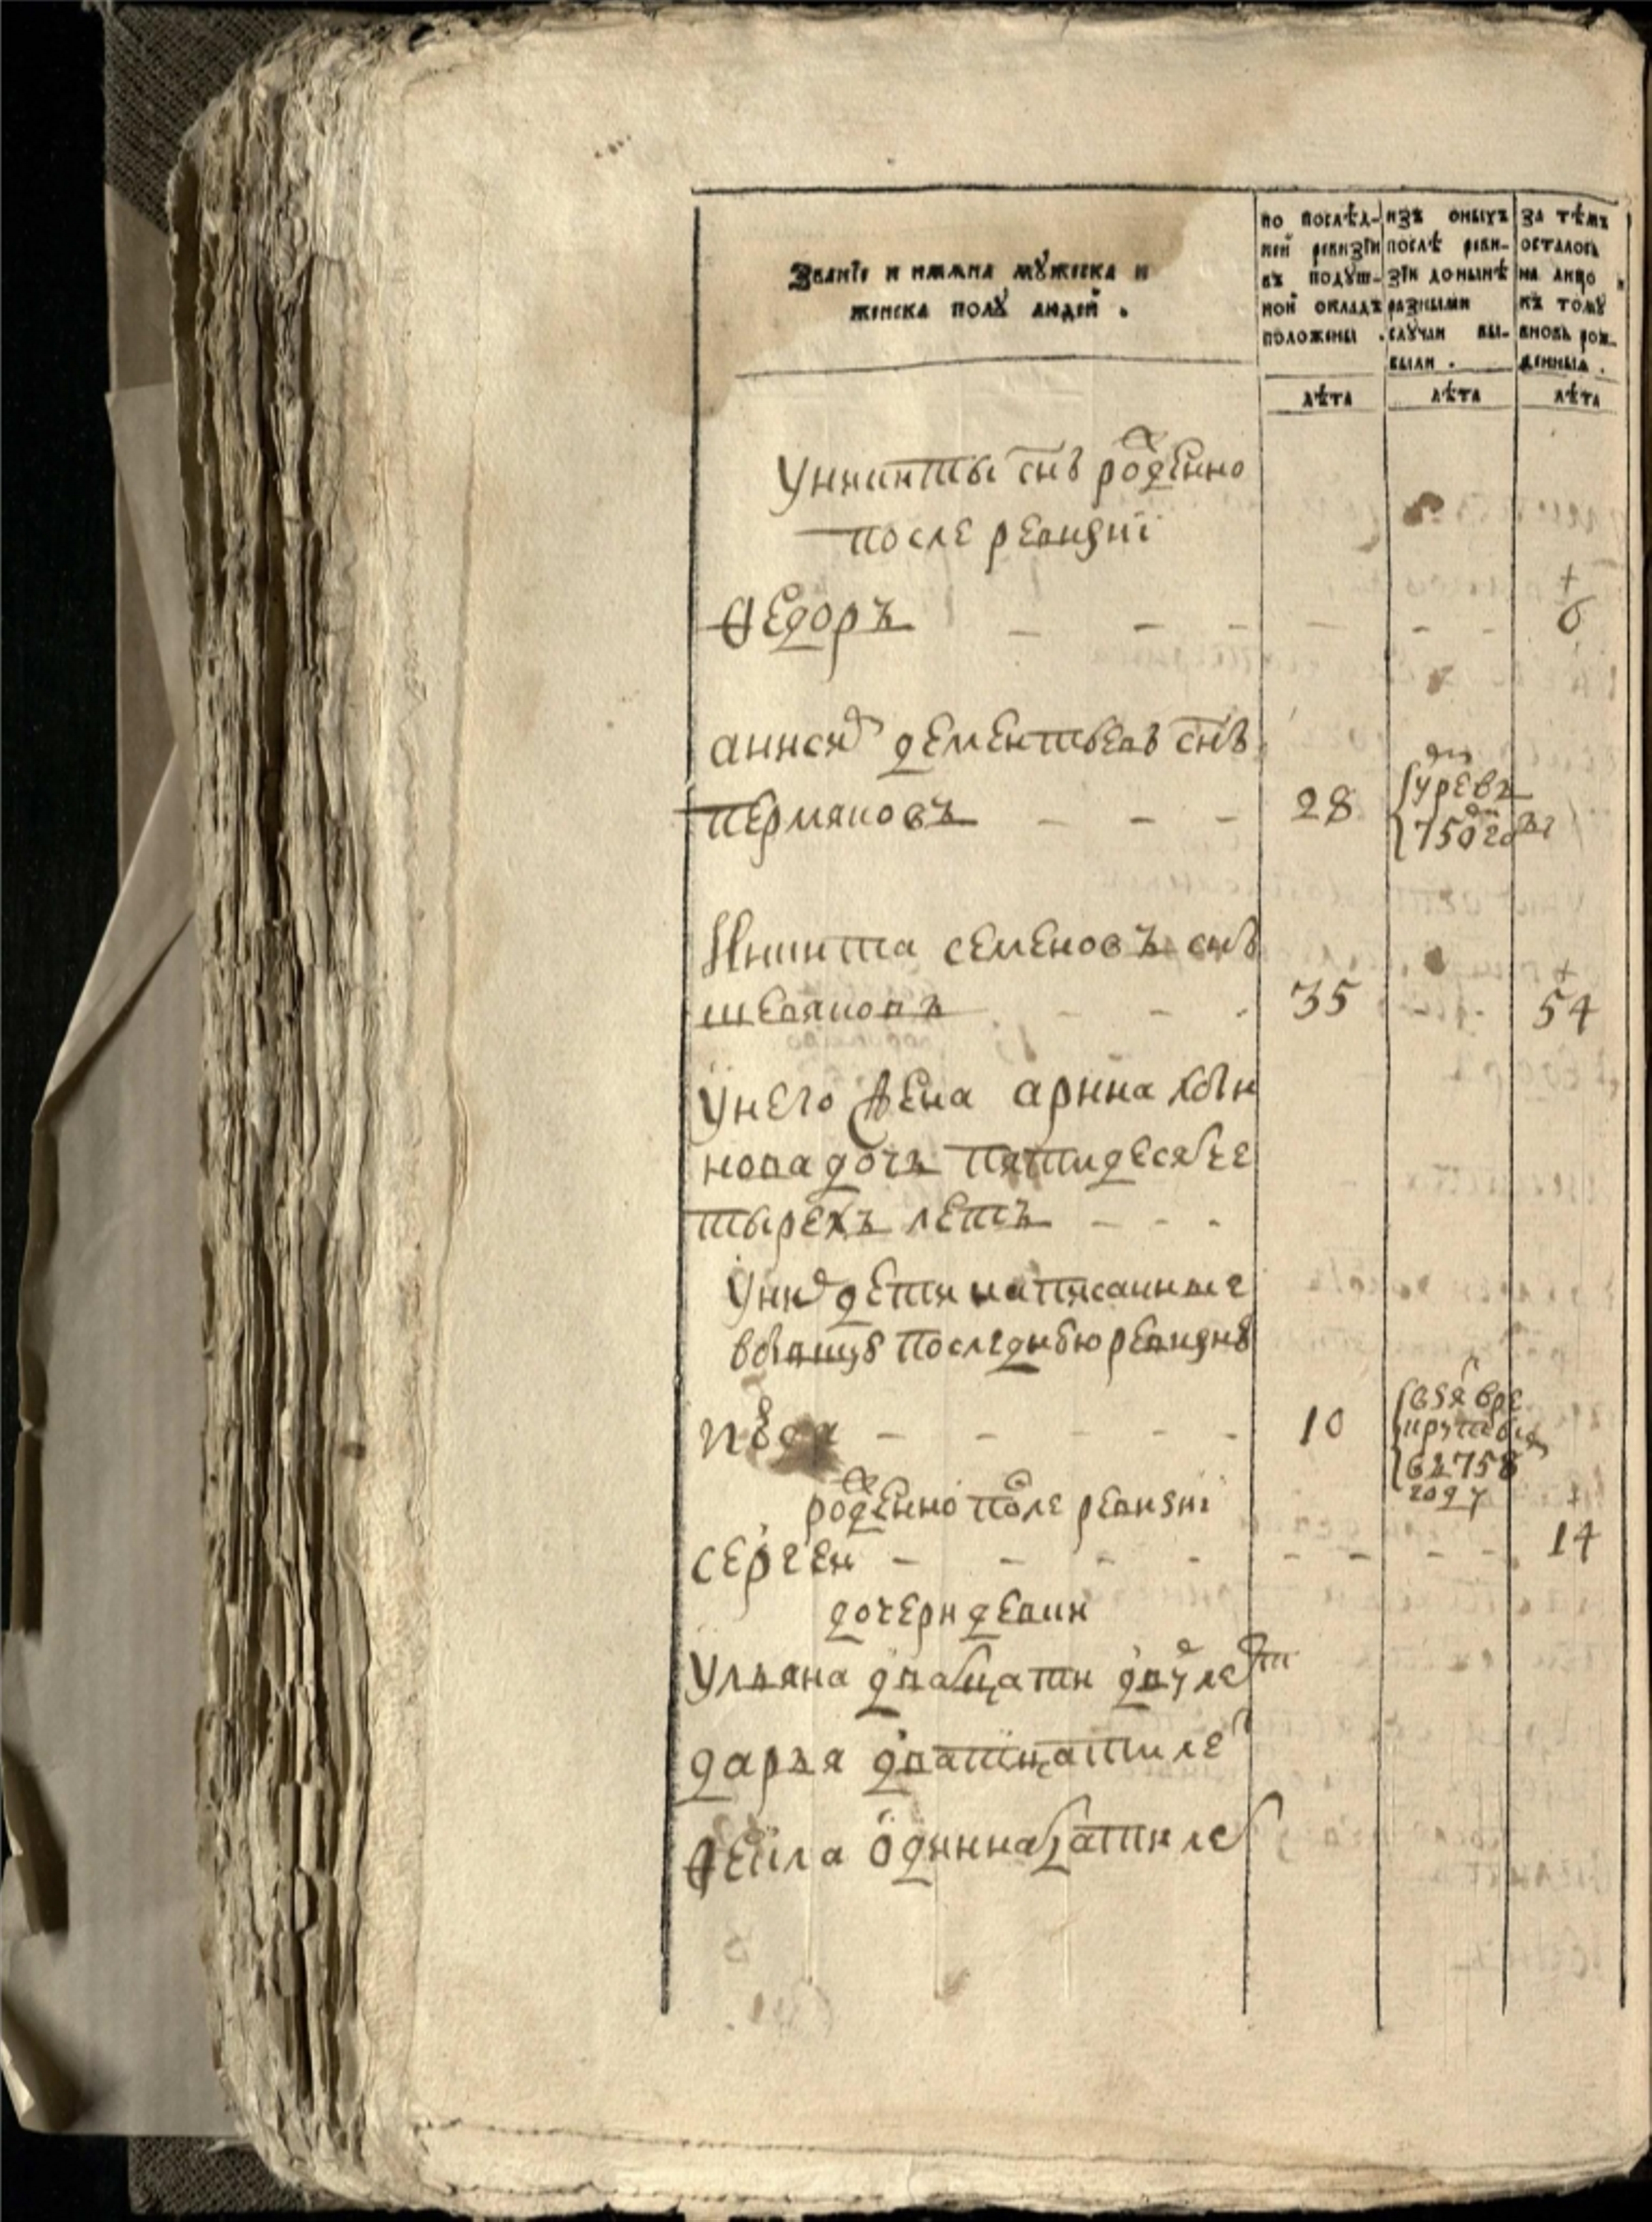 Званїе и имяна мꙋжеска и
женска полꙋ людей .
по послѣд-
ней ревизїи
въ подꙋш-
ной окладъ
положены .
изъ оныхъ
послѣ реви-
зїи донынѣ
разными
слꙋчаи вы-
были .
за тѣмъ
осталось
на лицо ,
къ томꙋ
вновь рож-
денныя .
лѣта
лѣта
лѣта
У никиты снъ рожденно
после ревизиї
Ѳедоръ - - - - - - 6
дементьевъ снъ
пермяковъ - - - 28
750 году
Никита семеновъ снъ
шевяковъ - - - 35 54
У него жена арина
нова дочь пятидесят че
тырехъ летъ - - -
У них дети написанные
последнюю ревизию
10
758
году
рожденно после ревизиї
сергеи - - - - - - - - 14
дочери девки
Ульяна двацати дву лет
дарья дватцати лет
Ѳекла одиннацати лет